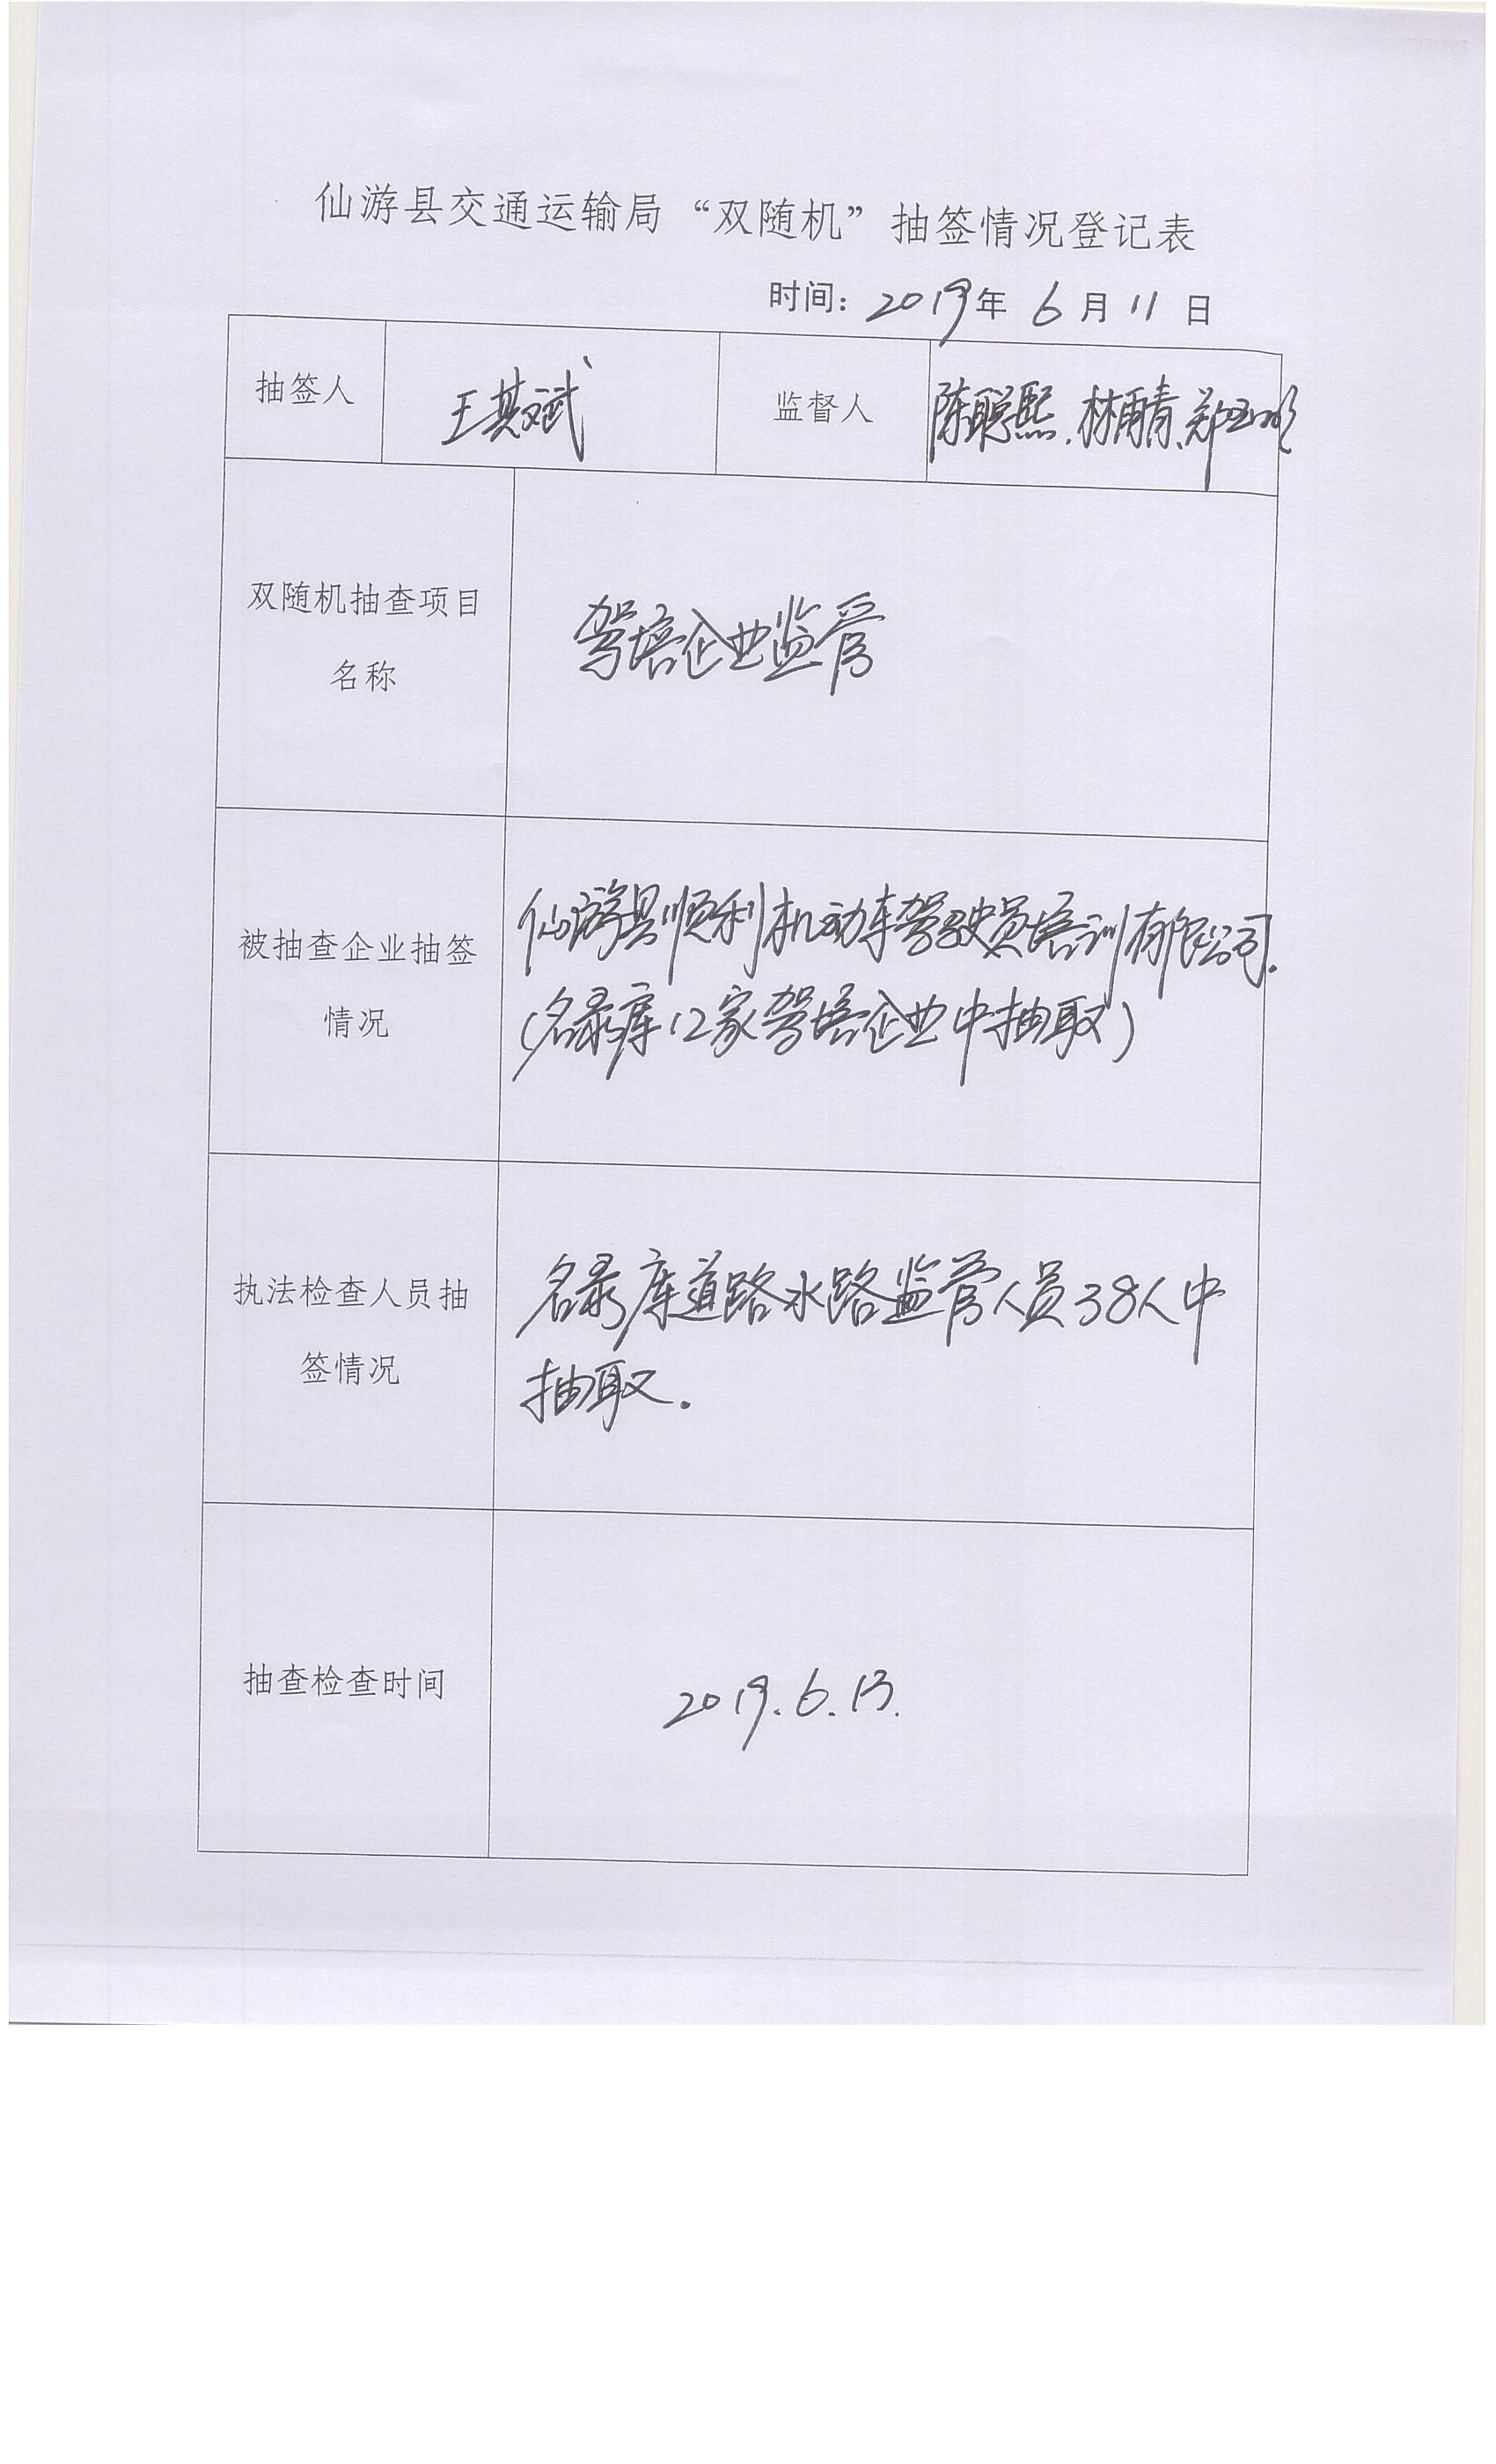 仙游县交通运输局“双随机”抽签情况登记表
时间：2019年6月11日
抽签人
王其斌
监督人
陈聪熙、林雨青、郑
双随机抽查项目
名称
驾培企业监管
被抽查企业抽签
情况
仙游县顺利机动车驾驶员培训有限公司.
（名录库12家驾培企业中抽取）
执法检查人员抽
签情况
名录库道路水路监管人员38人中
抽取.
抽查检查时间
2019.6.13.